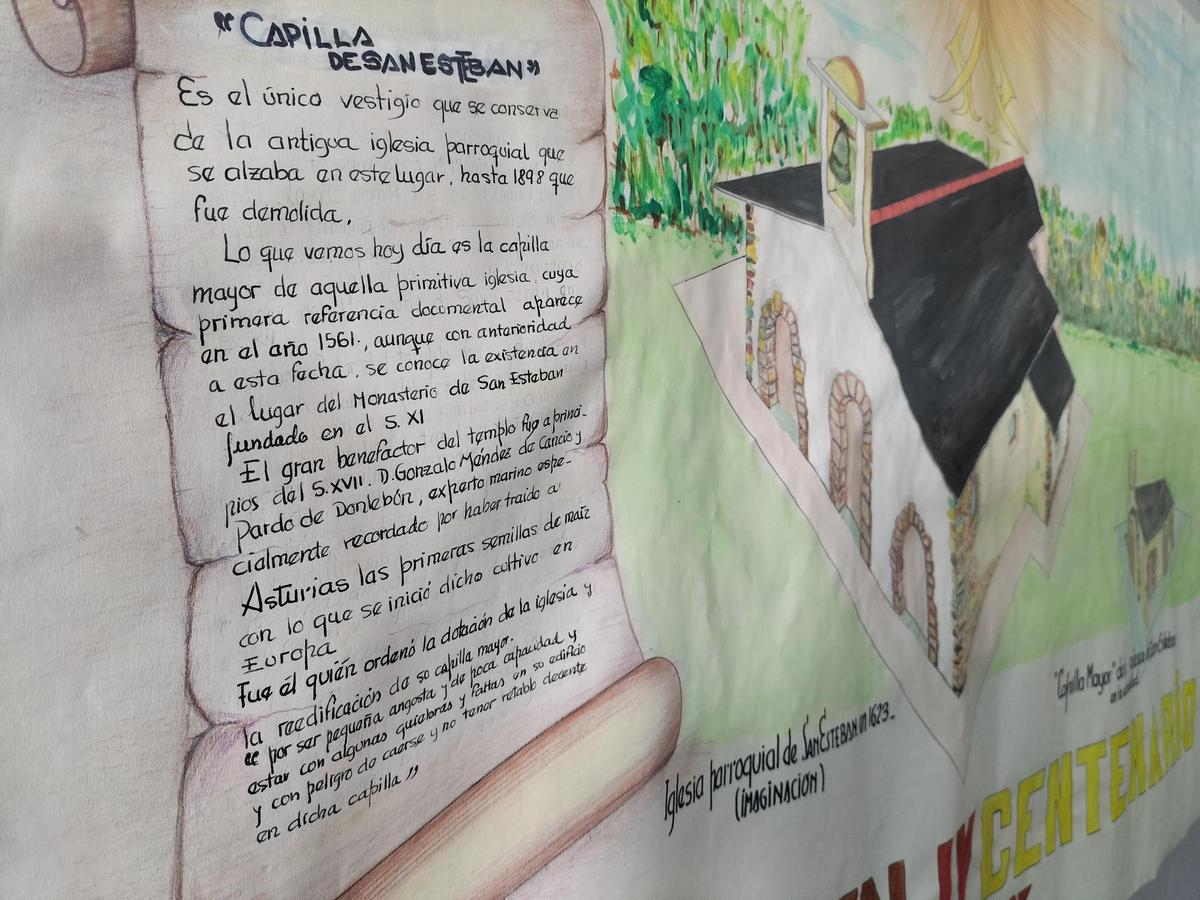 “CAPILLA
DE SAN ESTEBAN”
Es el único vestigio que se conserva
de la antigua iglesia parroquial que
se alzaba en este lugar, hasta 1898 que
fue demolida.
Lo que vemos hoy día es la capilla
mayor de aquella primitiva iglesia, cuya
primera referencia documental aparece
en el año 1561., aunque con anterioridad
a esta fecha, se conoce la existencia en
el lugar del Monasterio de San Esteban
fundado en el S. XI
El gran benefactor del templo fue a princi-
pios del S. XVII. D. Gonzalo Méndez de Cancio y
Pardo de Donlebún, experto marino espe-
cialmente recordado por haber traido a
Asturias las primeras semillas de maíz
con lo que se inició dicho cultivo en
Europa
Fue él quién ordenó la dotación de la iglesia y
la reedificación de su capilla mayor.
“ por ser pequeña angosta y de poca capacidad y
estar con algunas quiebras y faltas en su edificio
y con peligro de caerse y no tener retablo decente
en dicha capilla ”
Iglesia parroquial de San Esteban en 1623_
(IMAGINACIÓN)
"Capilla Mayor" de San Esteban
CENTENARIO